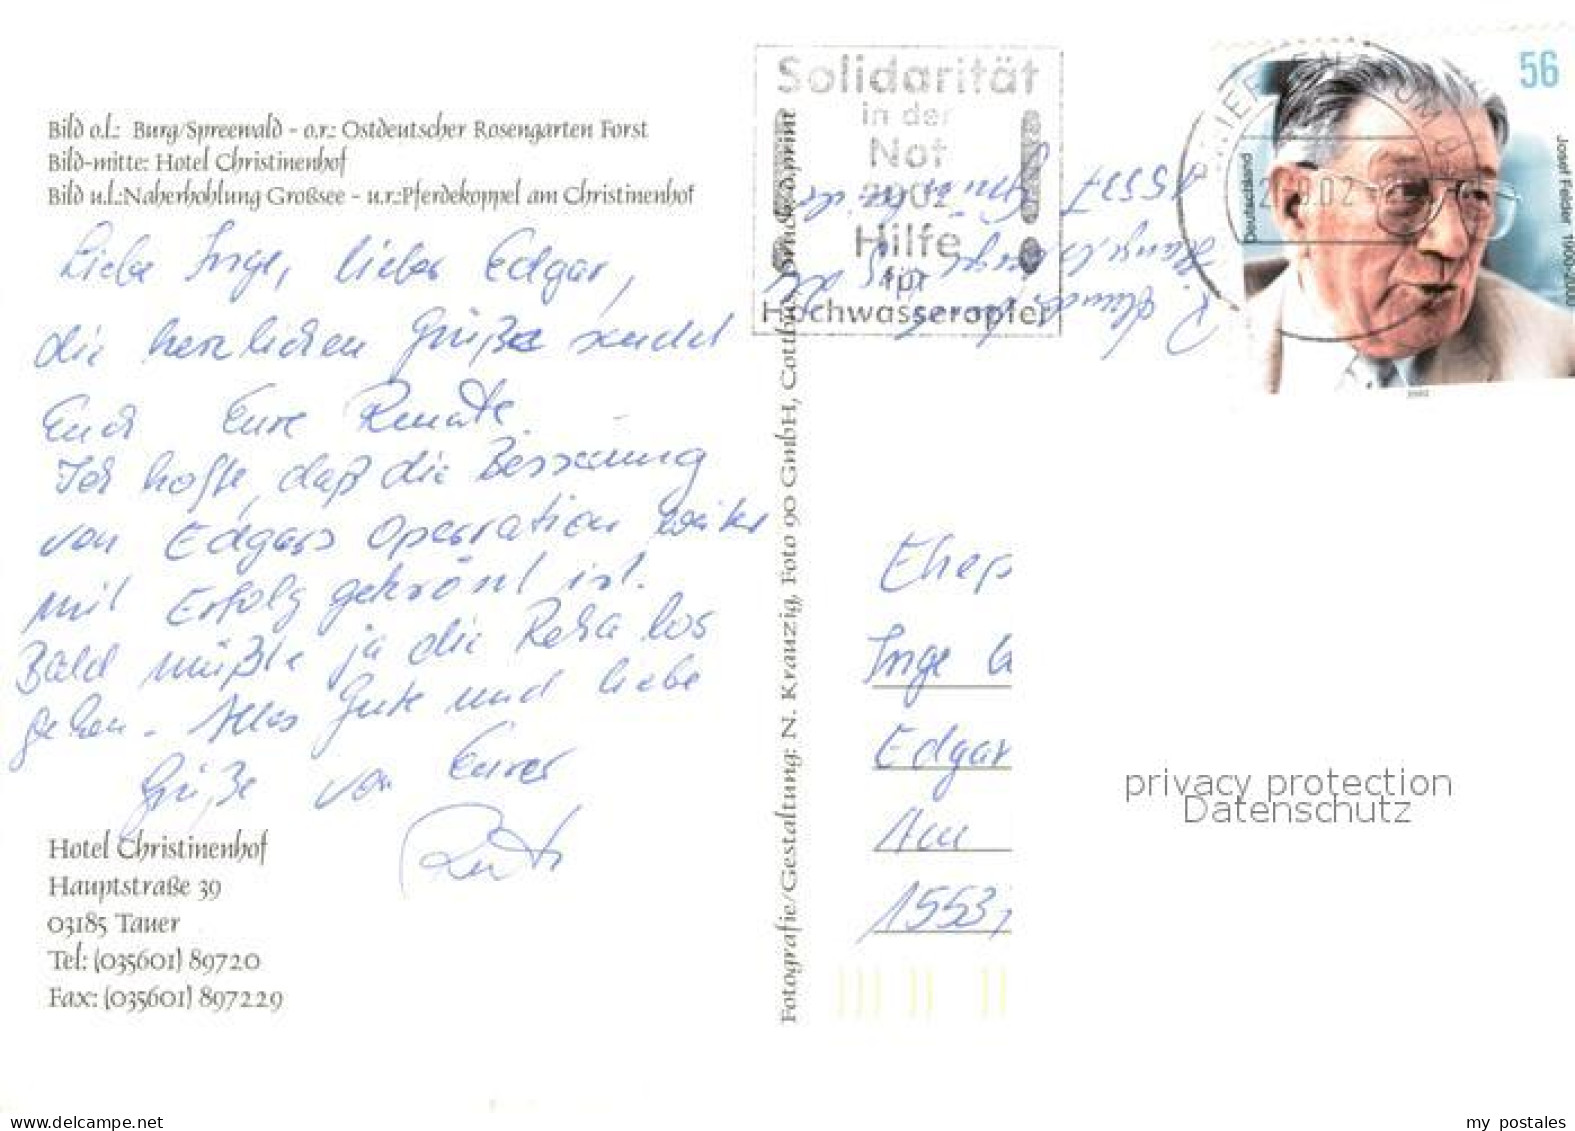 Bild o.l.: Burg/Spreewald - o.r.: Ostdeutscher Rosengarten Forst
Bild-mitte: Hotel Christinenhof
Bild u.l.:Naherhohlung Großsee - u.r.:Pferdekoppel am Christinenhof
Liebe Inge, lieber Edgar,
die herzlichen Grüße sendet
Euch Eure Renate.
Ich hoffe, daß die Besserung
von Edgars Operration weiter
mit Erfolg gekrönt ist.
Bald müßte ja die Reha los
gehen. Alles Gute und liebe
Grüße von Eurer
Hotel Christinenhof
Hauptstraße 39
03185 Tauer
Tel: (035601) 89720
Fax: (035601) 897229
Fotografie/Gestaltung: N. Krauzig, Foto 90 GmbH, Cottbus, Druck: d.print
Solidarität
in der
Not
2002
Hilfe
für
Hochwasseropfer
15537
BRIEFZENTRUM
02
56
Deutschland
Josef Felder 1900-2000
2002
Ehep
Inge
Edgar
Am
1553
privacy protection
Datenschutz
www.delcampe.net
my postales